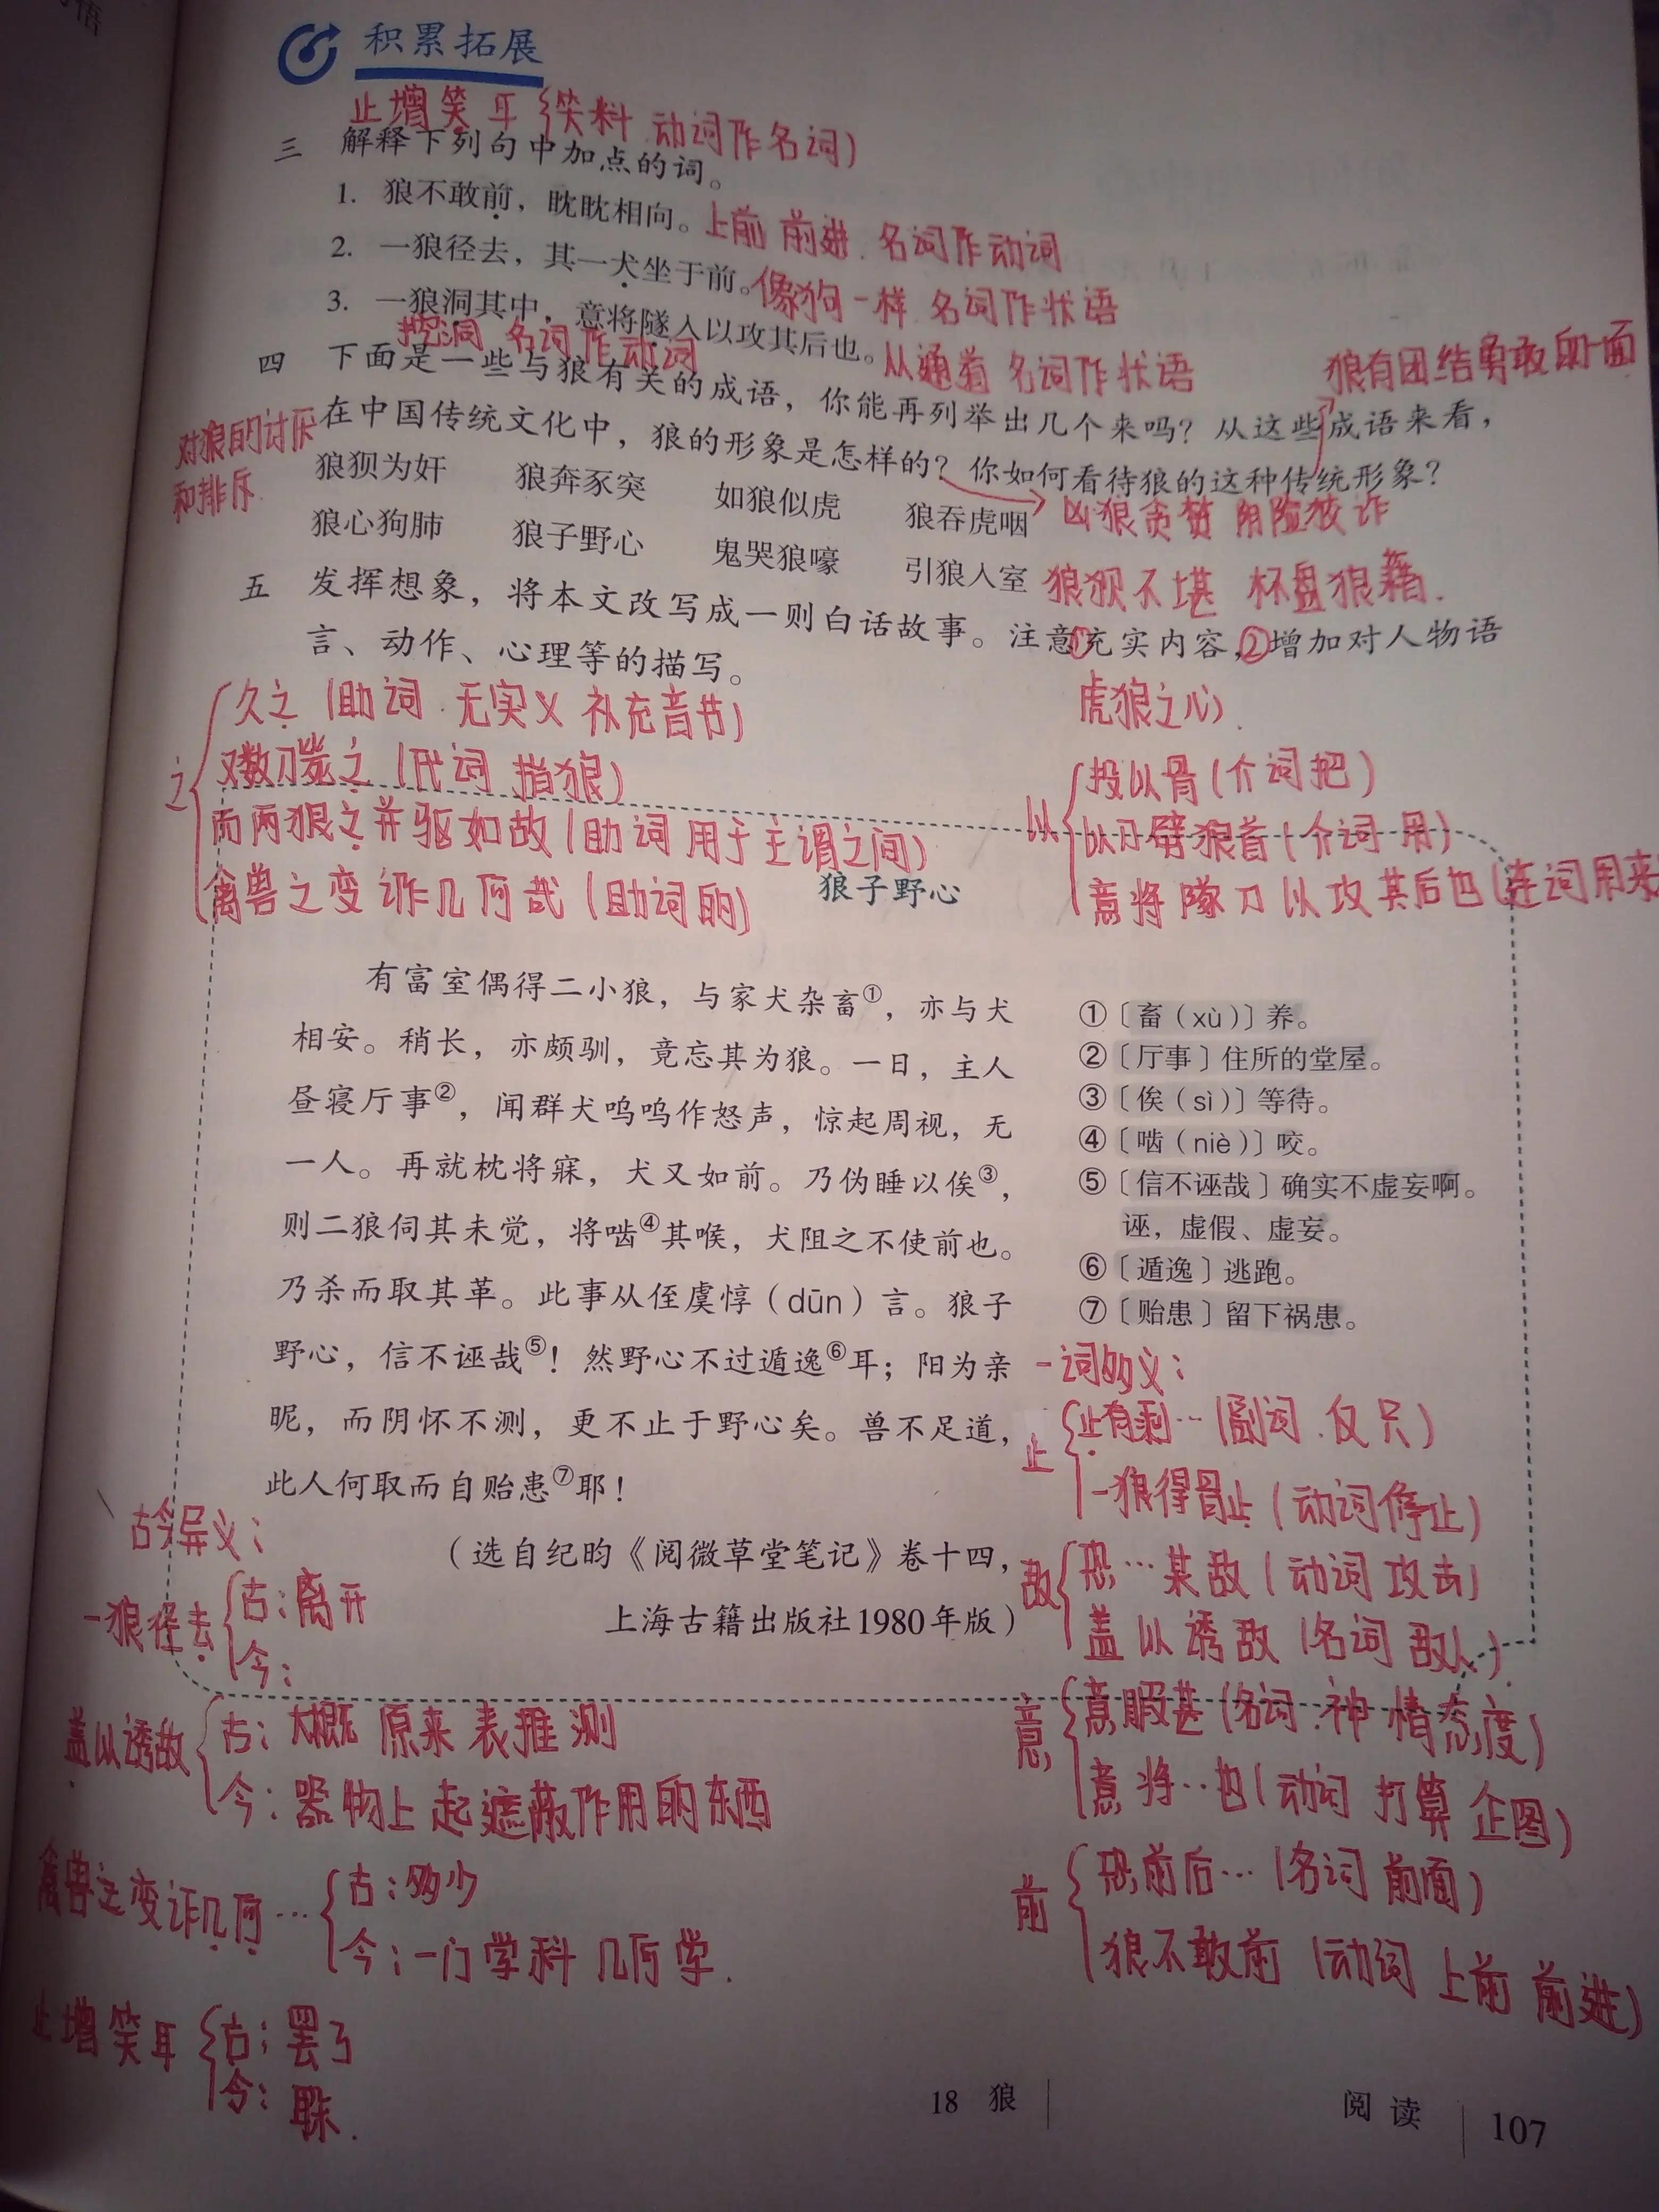 积累拓展
止增笑耳(笑料 动词作名词)
三 解释下列句中加点的词。
1. 狼不敢前，眈眈相向。上前 前进 名词作动词
2. 一狼径去，其一犬坐于前。像狗一样 名词作状语
3. 一狼洞其中，意将隧入以攻其后也。从通道 名词作状语
挖洞 名词作动词
狼有团结勇敢的一面
四 下面是一些与狼有关的成语，你能再列举出几个来吗？从这些成语来看，
在中国传统文化中，狼的形象是怎样的？你如何看待狼的这种传统形象？
对狼的讨厌
和排斥
凶狠贪婪 阴险狡诈
狼狈为奸 狼奔豕突 如狼似虎 狼吞虎咽
狼心狗肺 狼子野心 鬼哭狼嚎 引狼入室
狼狈不堪 杯盘狼藉.
五 发挥想象，将本文改写成一则白话故事。注意①充实内容，②增加对人物语
言、动作、心理等的描写。
虎狼之心.
之
久之(助词.无实义 补充音节)
又数刀毙之(代词 指狼)
而两狼之并驱如故(助词 用于主谓之间)
禽兽之变诈几何哉(助词的)
以
投以骨(介词把)
以刀劈狼首(介词 用)
意将隧刀以攻其后也(连词用来
狼子野心
有富室偶得二小狼，与家犬杂畜①，亦与犬
相安。稍长，亦颇驯，竟忘其为狼。一日，主人
昼寝厅事②，闻群犬呜呜作怒声，惊起周视，无
一人。再就枕将寐，犬又如前。乃伪睡以俟③，
则二狼伺其未觉，将啮④其喉，犬阻之不使前也。
乃杀而取其革。此事从侄虞惇（dūn）言。狼子
野心，信不诬哉⑤！然野心不过遁逸⑥耳；阳为亲
昵，而阴怀不测，更不止于野心矣。兽不足道，
此人何取而自贻患⑦耶！
（选自纪昀《阅微草堂笔记》卷十四，
上海古籍出版社1980年版）
①〔畜（xù）〕养。
②〔厅事〕住所的堂屋。
③〔俟（sì）〕等待。
④〔啮（niè）〕咬。
⑤〔信不诬哉〕确实不虚妄啊。
诬，虚假、虚妄。
⑥〔遁逸〕逃跑。
⑦〔贻患〕留下祸患。
一词多义：
止
止有剩…(副词.仅 只)
一狼得骨止(动词停止)
敌
恐…其敌(动词 攻击)
盖以诱敌(名词 敌人)
意
意暇甚(名词.神情态度)
意将…也(动词 打算 企图)
前
恐前后…(名词 前面)
狼不敢前(动词 上前 前进)
古今异义：
一狼径去
古：离开
今：
盖以诱敌
古：大概 原来 表推测
今：器物上起遮蔽作用的东西
禽兽之变诈几何…
古：多少
今：一门学科 几何学.
止增笑耳
古：罢了
今：
18 狼
阅读
107